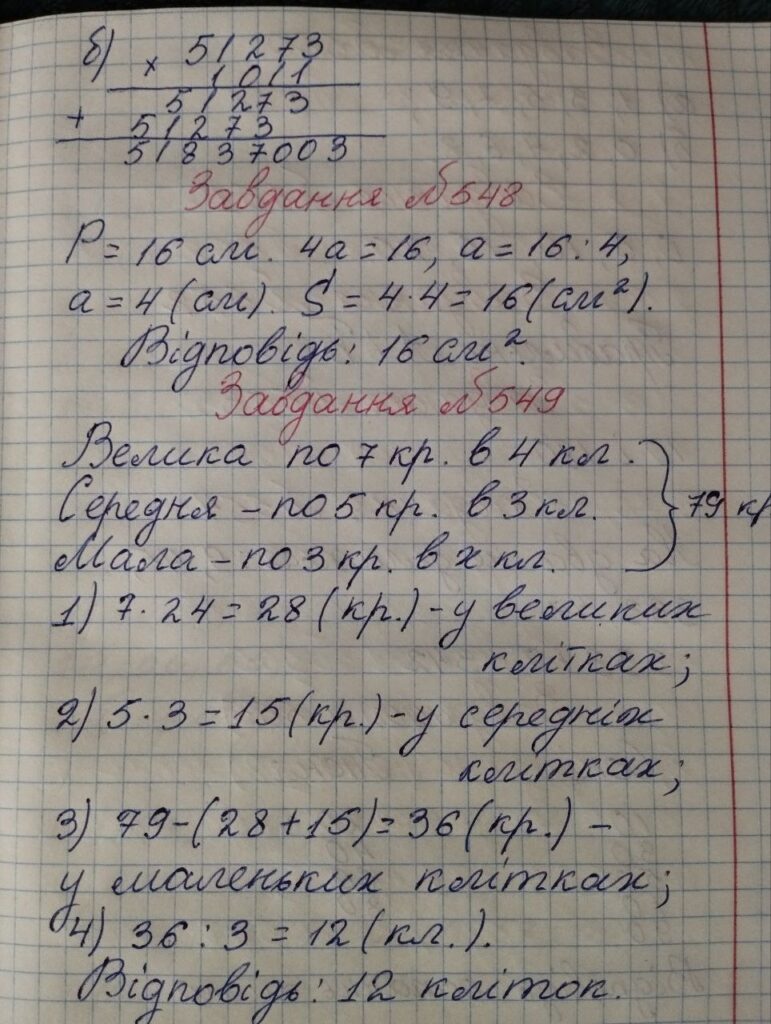 б) × 51273
1011
51273
+ 51273
51837003
Завдання №548
P = 16 см. 4a = 16, a = 16 : 4,
a = 4 (см). S = 4 · 4 = 16 (см²).
Відповідь: 16 см².
Завдання №549
Велика по 7 кр. в 4 кл.
Середня – по 5 кр. в 3 кл. } 79 кр
Мала – по 3 кр. в x кл.
1) 7 · 24 = 28 (кр.) – у великих
клітках;
2) 5 · 3 = 15 (кр.) – у середніх
клітках;
3) 79 – (28 + 15) = 36 (кр.) –
у маленьких клітках;
4) 36 : 3 = 12 (кл.).
Відповідь: 12 кліток.